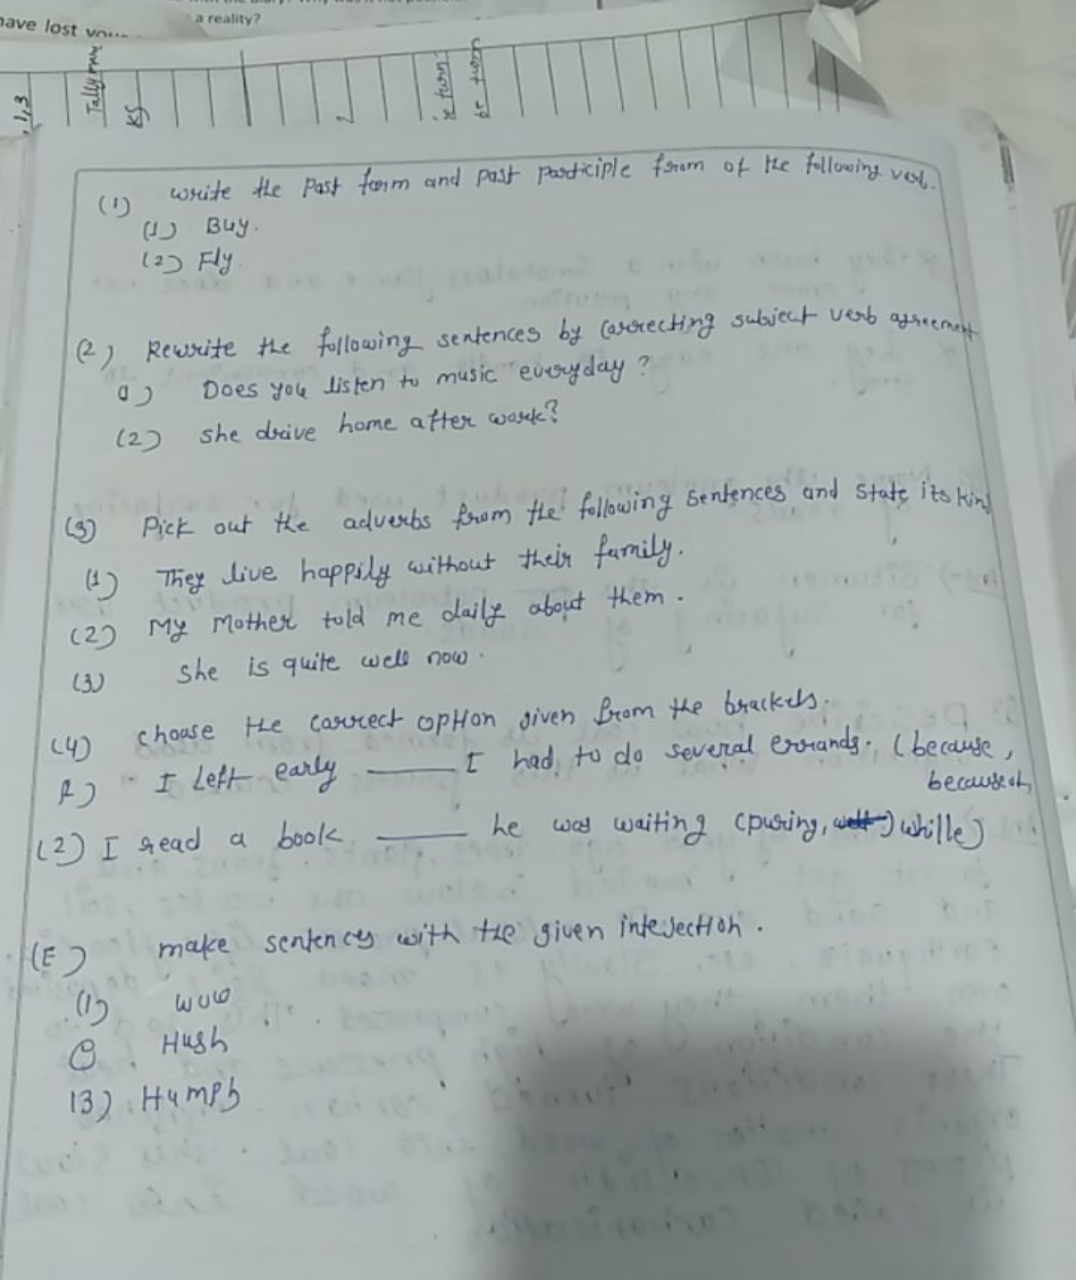 a reality?
have lost
Tally
(1) write the Past form and past participle from of the following verb.
(1) Buy.
(2) Fly.
(2) Rewrite the following sentences by correcting subject verb agreement
a) Does you listen to music everyday ?
(2) she drive home after work?
(3) Pick out the adverbs from the following sentences and state its kind
(1) They live happily without their family.
(2) My Mother told me daily about them.
(3) she is quite well now.
(4) choose the correct option given from the brackets.
I left early ____ I had to do several errands. (because,
because of,
(2) I read a book ____ he was waiting (puring, while)
(E) make sentences with the given intejection.
(1) wow
Hush
13) Humph